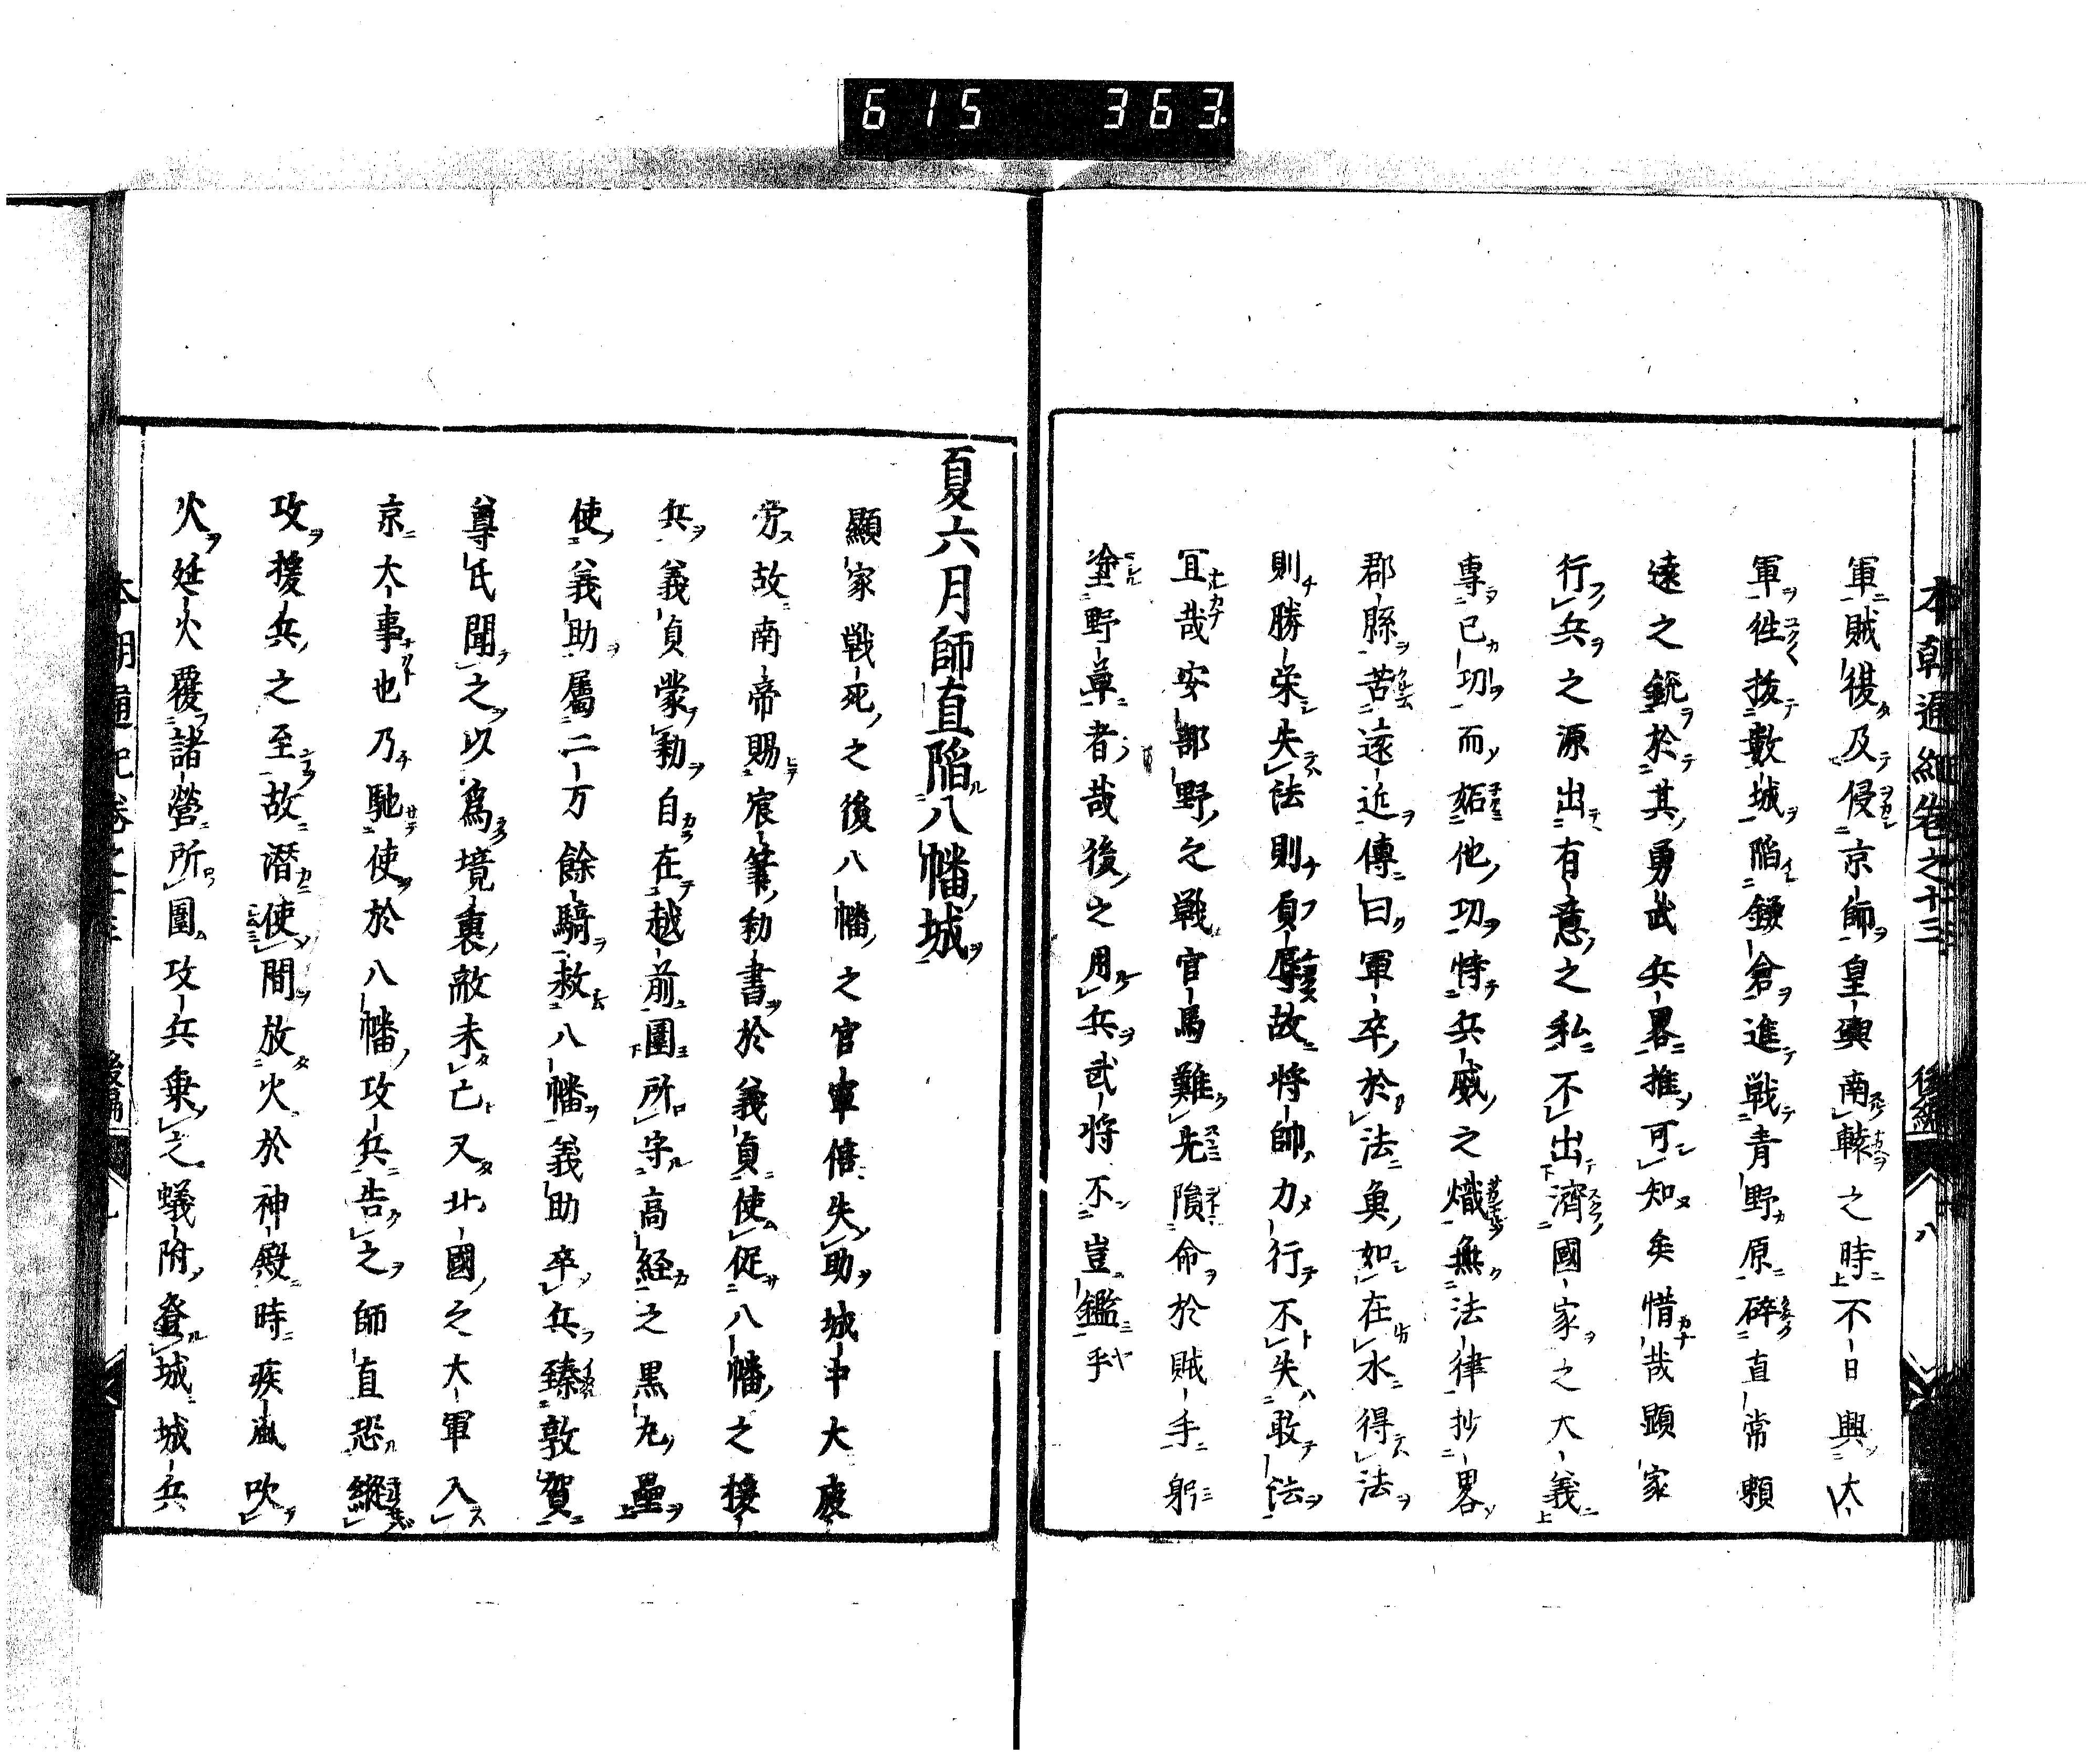 615 363
本朝通紀卷之十三 後編 八
軍賊復及侵京師皇輿南轅之時不日興大
軍徃拔數城陷鎌倉進戰青野原碎直常頼
遠之銳於其勇武兵畧推可知矣惜哉顕家
行兵之源出有意之私不出濟國家之大義
專己功而妬他功恃兵威之熾無法律抄畧
郡縣苦遠近傳曰軍卒於法魚如在水得法
則勝栄失法則負辱故將帥力行不失敢法
冝哉安部野之戰官馬難先隕命於賊手躬
塗野草者哉後之用兵武将不豈鑑乎
夏六月師直陷八幡城
顯家戦死之後八幡之官軍倍失助城中大
労故南帝賜宸筆勅書於義貞使促八幡之援
兵義貞蒙勅自在越前圍所守高經之黒丸壘
使義助屬二万餘騎救八幡義助卒兵臻敦賀
尊氏聞之以爲境裏敵未亡又北國之大軍入
京大事也乃馳使於八幡攻兵告之師直恐縱
攻援兵之至故潜使間放火於神殿時疾風吹
火延火覆諸營所圍攻兵乗之蟻附登城城兵